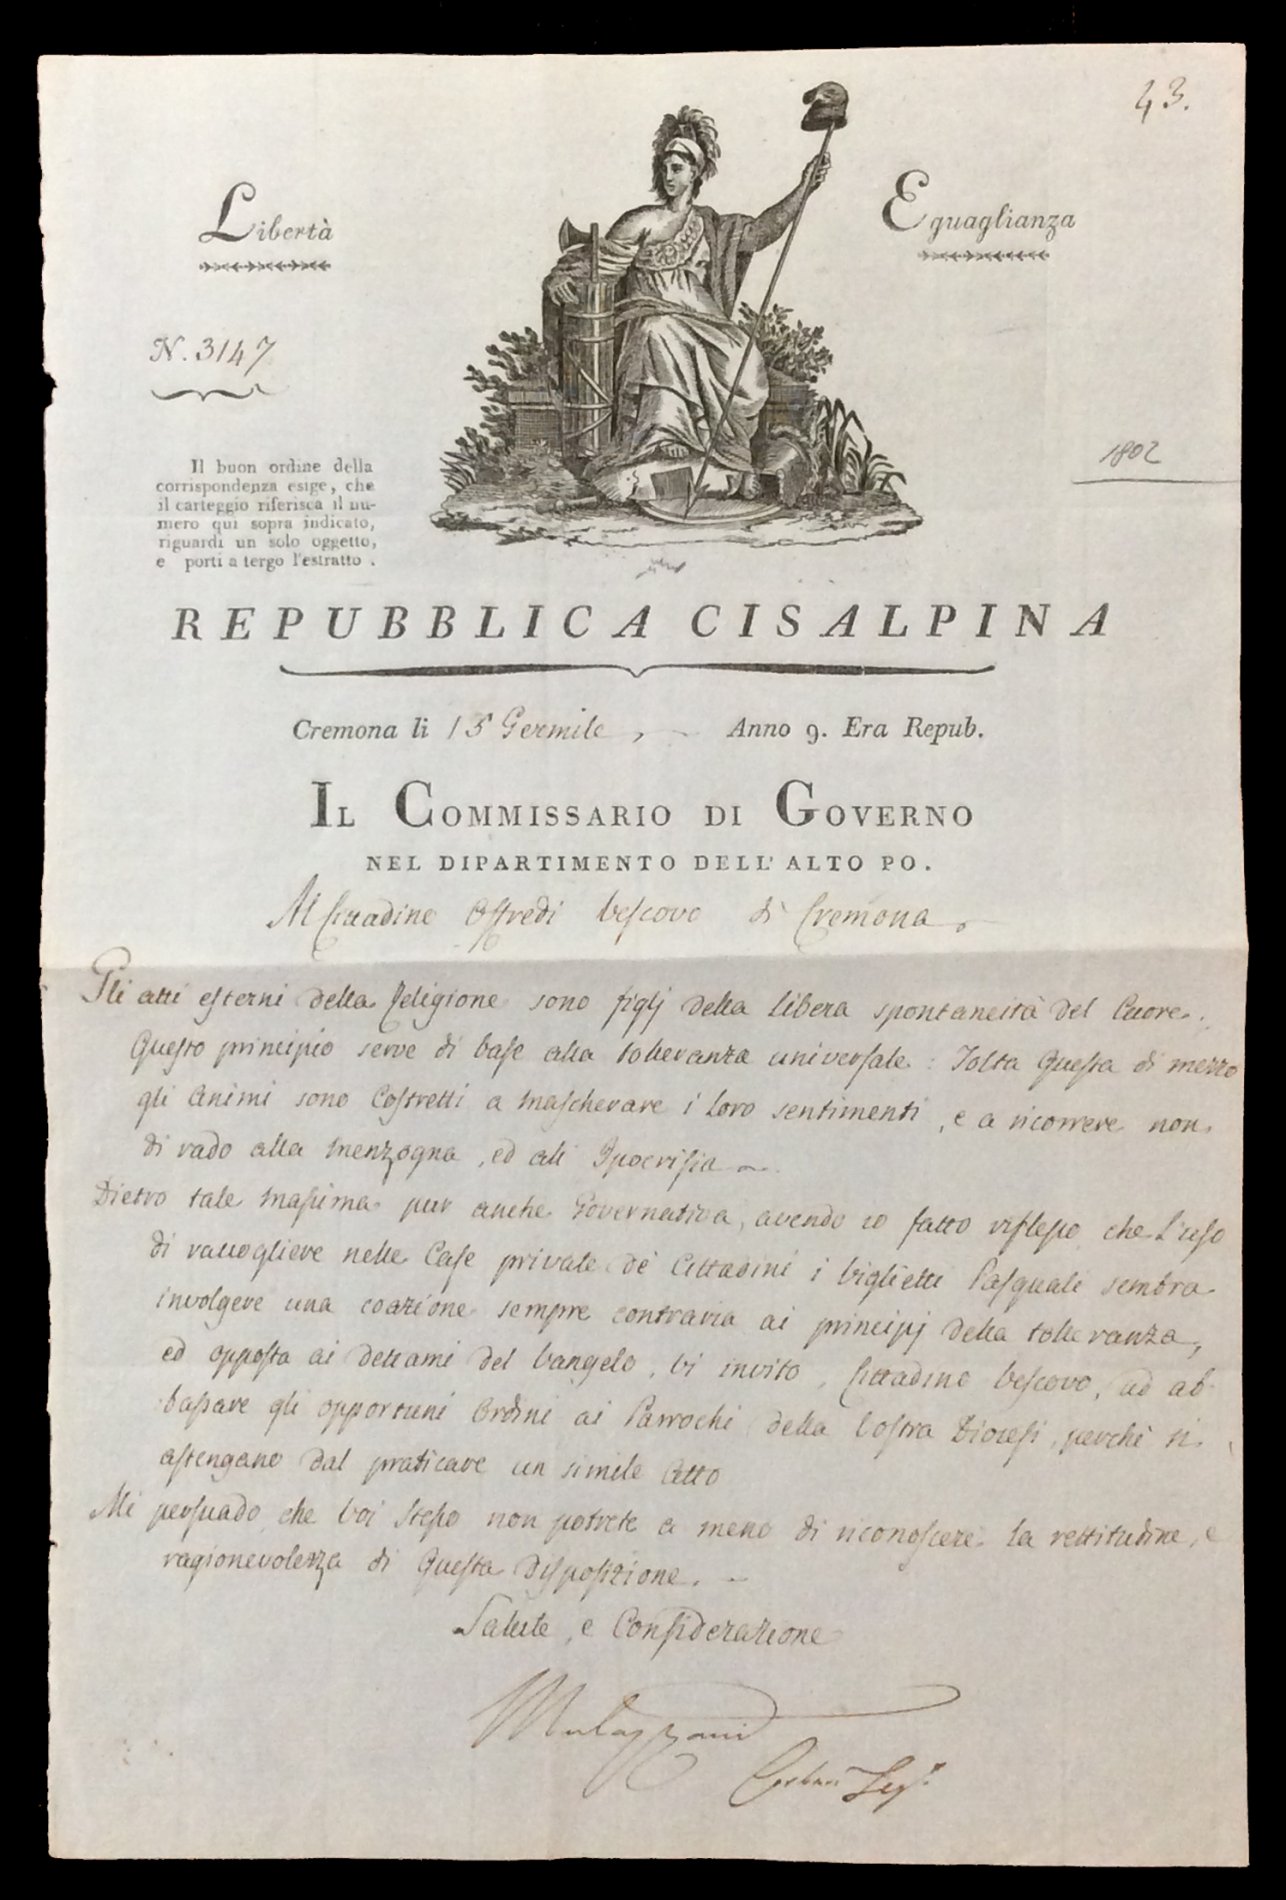 43.
Libertà
Eguaglianza
N. 3147
1802
Il buon ordine della
corrispondenza esige, che
il carteggio riferisca il nu-
mero qui sopra indicato,
riguardi un solo oggetto,
e porti a tergo l'estratto.
REPUBBLICA CISALPINA
Cremona li 15 Germile, Anno 9. Era Repub.
IL COMMISSARIO DI GOVERNO
NEL DIPARTIMENTO DELL' ALTO PO.
Al Cittadino Offredi Vescovo di Cremona.
Gli atti esterni della Religione sono figlj della libera spontaneità del Cuore.
Questo principio serve di base alla tolleranza universale: Tolta questa di mezzo
gli animi sono costretti a mascherare i loro sentimenti, e a ricorrere non
di rado alla menzogna, ed all' Ipocrisia
Dietro tale massima pur anche Governativa, avendo io fatto riflesso che l'uso
di raccogliere nelle Case private de' Cittadini i biglietti Pasquali sembra
involgere una coazione sempre contraria ai principj della tolleranza,
ed opposta ai dettami del Vangelo, Vi invito, Cittadino Vescovo, ad ab-
bassare gli opportuni Ordini ai Parrochi della Vostra Diocesi, perchè si
astengano dal praticare un simile Atto
Mi persuado che Voi stesso non potrete a meno di riconoscere la rettitudine, e
ragionevolezza di questa disposizione.
Salute, e Considerazione
Mulazzani
Seg.º